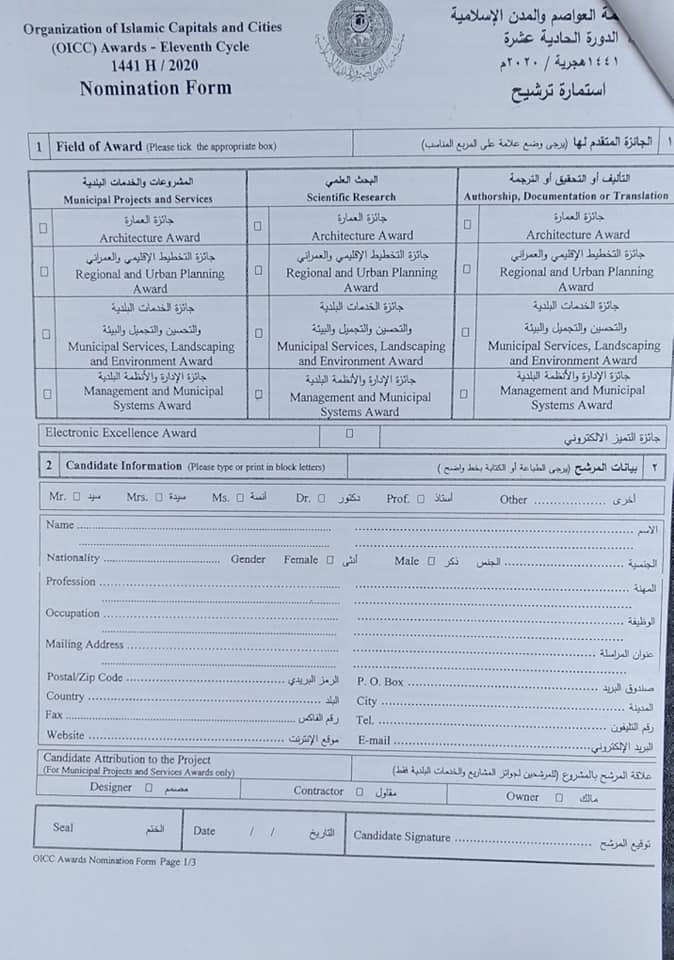 Organization of Islamic Capitals and Cities
(OICC) Awards - Eleventh Cycle
1441 H / 2020
Nomination Form
العواصم والمدن الإسلامية
الدورة الحادية عشرة
١٤٤١هجرية / ٢٠٢٠م
استمارة ترشيح
1 Field of Award (Please tick the appropriate box)
١ الجائزة المتقدم لها (يرجى وضع علامة على المربع المناسب)
المشروعات والخدمات البلدية
Municipal Projects and Services
البحث العلمي
Scientific Research
التأليف أو التحقيق أو الترجمة
Authorship, Documentation or Translation
جائزة العمارة
Architecture Award
جائزة العمارة
Architecture Award
جائزة العمارة
Architecture Award
جائزة التخطيط الإقليمي والعمراني
Regional and Urban Planning
Award
جائزة التخطيط الإقليمي والعمراني
Regional and Urban Planning
Award
جائزة التخطيط الإقليمي والعمراني
Regional and Urban Planning
Award
جائزة الخدمات البلدية
والتحسين والتجميل والبيئة
Municipal Services, Landscaping
and Environment Award
جائزة الخدمات البلدية
والتحسين والتجميل والبيئة
Municipal Services, Landscaping
and Environment Award
جائزة الخدمات البلدية
والتحسين والتجميل والبيئة
Municipal Services, Landscaping
and Environment Award
جائزة الإدارة والأنظمة البلدية
Management and Municipal
Systems Award
جائزة الإدارة والأنظمة البلدية
Management and Municipal
Systems Award
جائزة الإدارة والأنظمة البلدية
Management and Municipal
Systems Award
Electronic Excellence Award جائزة التميز الالكتروني
2 Candidate Information (Please type or print in block letters)
٢ بيانات المرشح (يرجى الطباعة أو الكتابة بخط واضح)
Mr. سيد Mrs. سيدة Ms. آنسة Dr. دكتور Prof. أستاذ Other أخرى
Name الاسم
Nationality Gender Female أنثى Male ذكر الجنس الجنسية
Profession المهنة
Occupation الوظيفة
Mailing Address عنوان المراسلة
Postal/Zip Code الرمز البريدي P. O. Box صندوق البريد
Country البلد City المدينة
Fax رقم الفاكس Tel. رقم التليفون
Website موقع الإنترنت E-mail البريد الإلكتروني
Candidate Attribution to the Project
(For Municipal Projects and Services Awards only)
علاقة المرشح بالمشروع (للمرشحين لجوائز المشاريع والخدمات البلدية فقط)
Designer مصمم Contractor مقاول Owner مالك
Seal الختم Date / / التاريخ Candidate Signature توقيع المرشح
OICC Awards Nomination Form Page 1/3